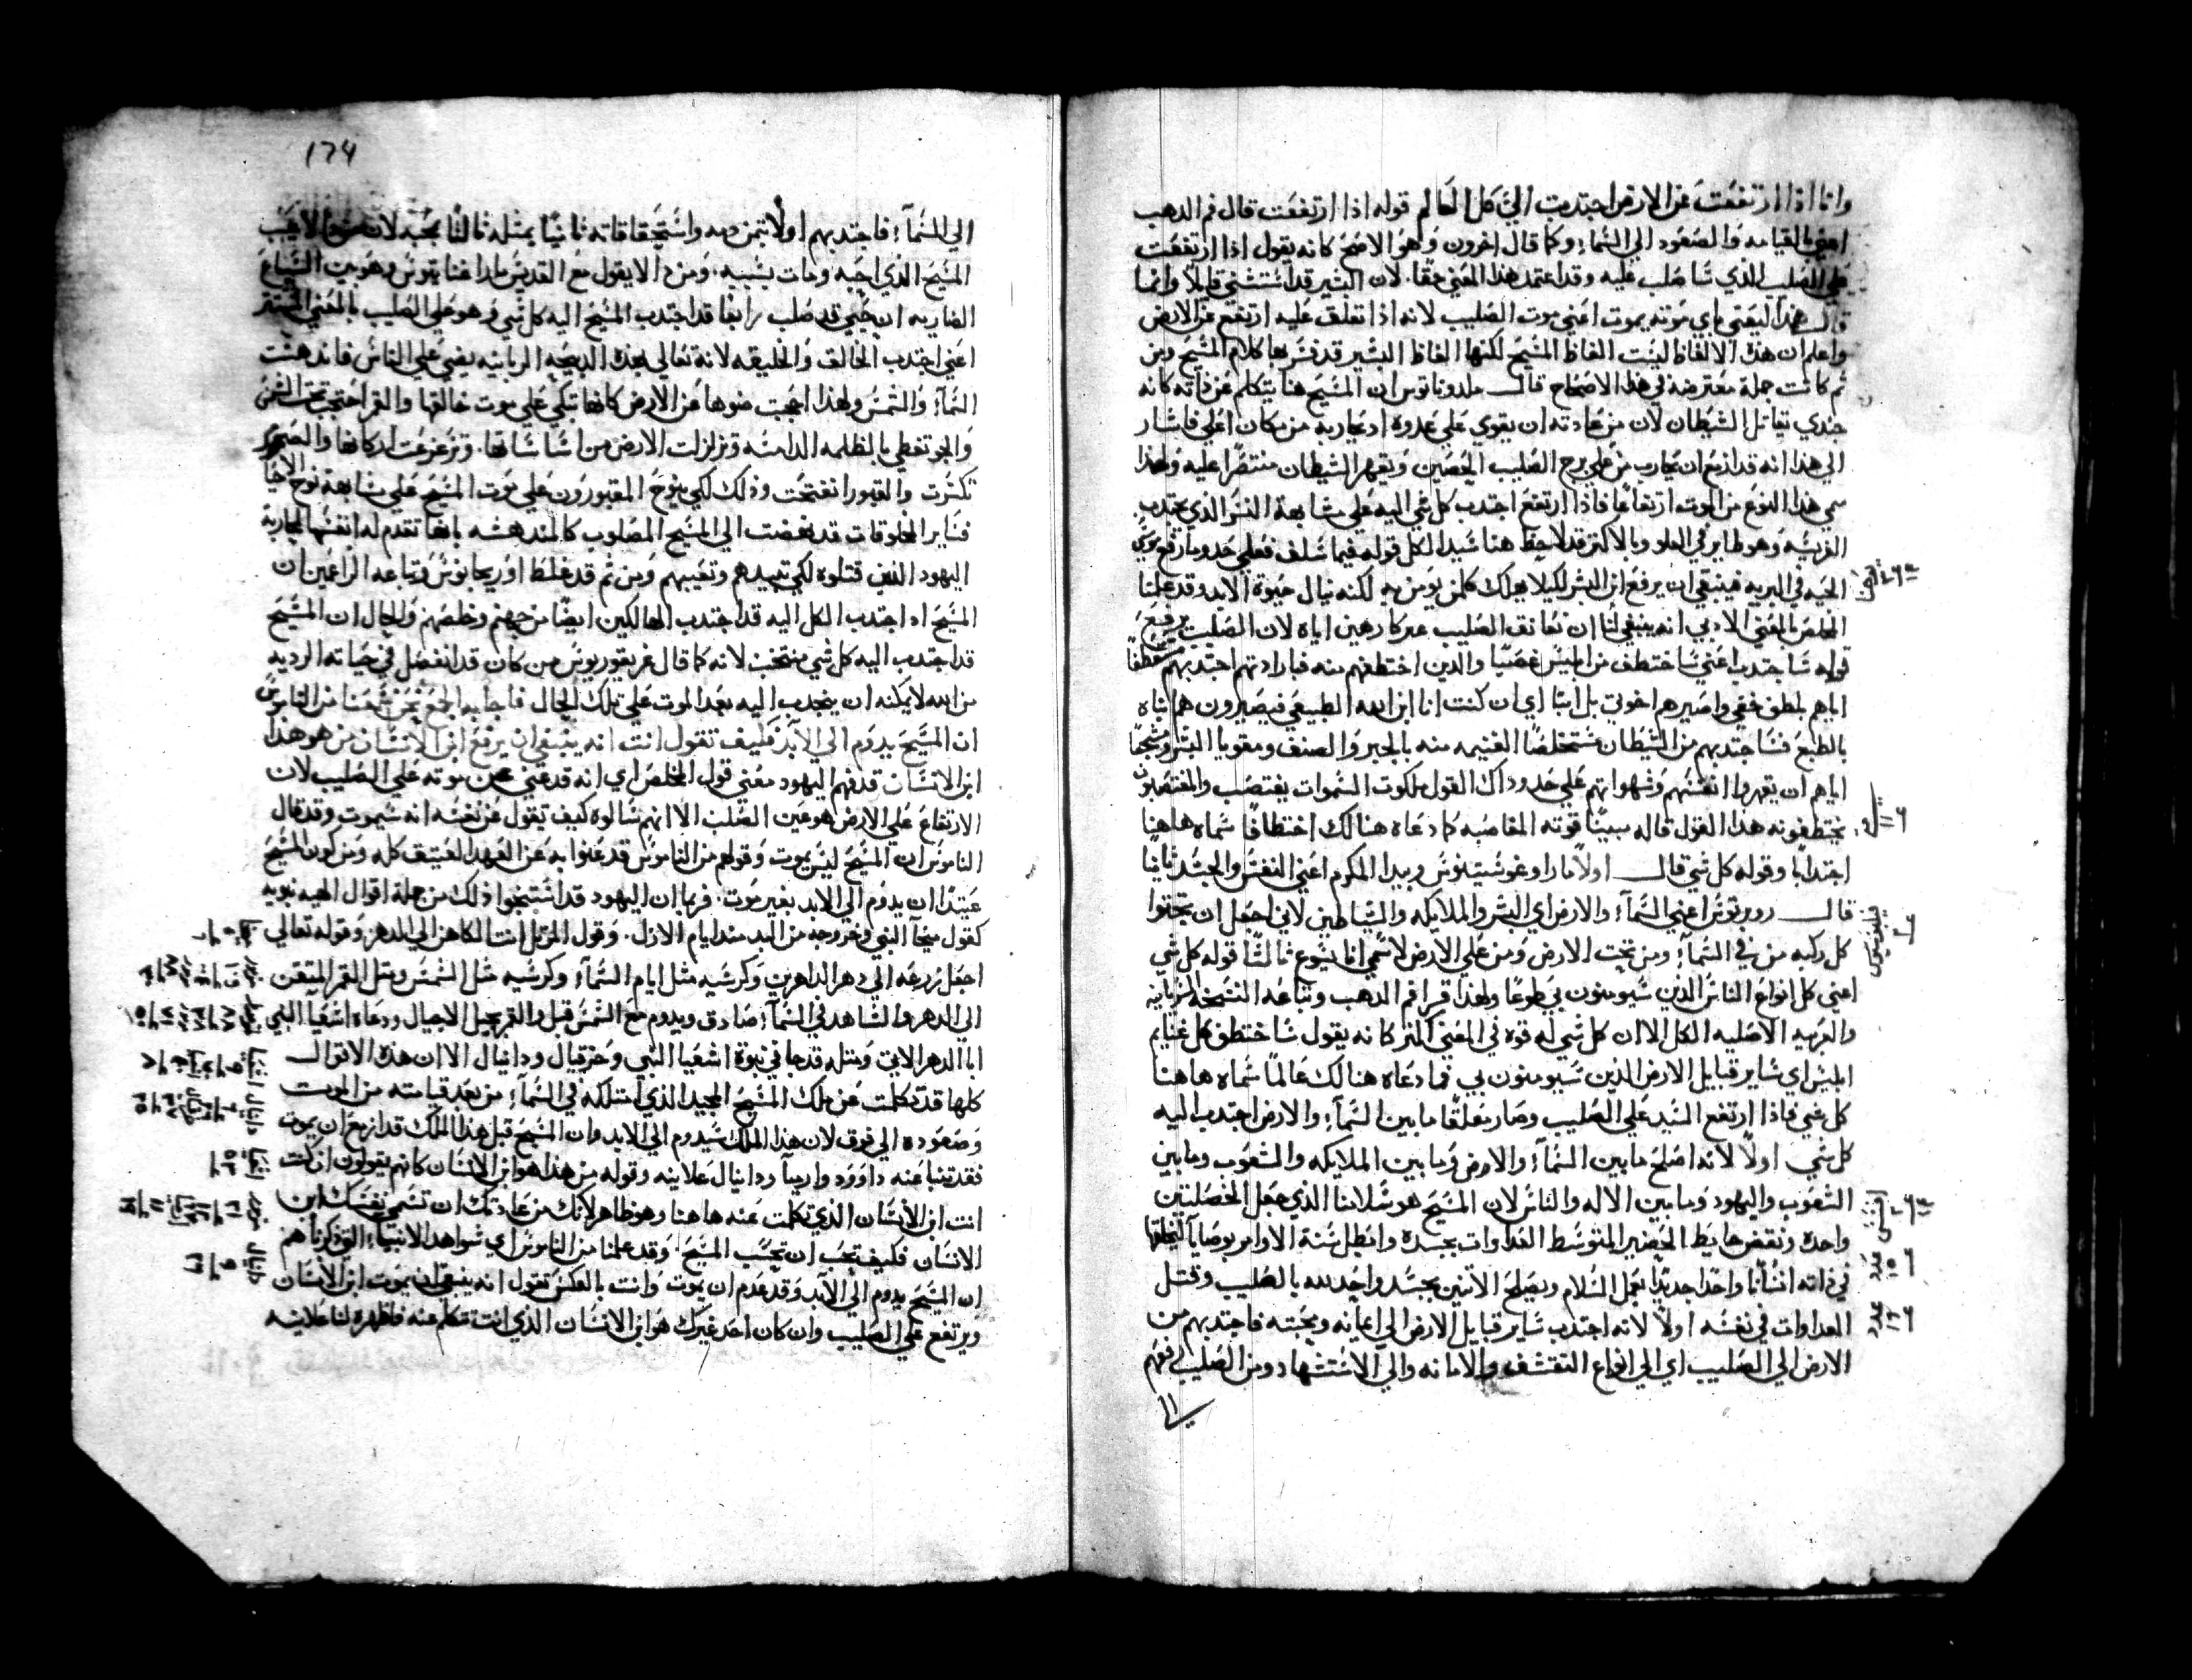 وانا اذا ارتفعت عن الارض اجتدبت الي كل العالم قوله اذا ارتفعت قال فم الدهب
اعني بالقيامه والصعود الي السماء وكما قال اخرون وهو الاصح كانه يقول اذا ارتفعت
علي الصليب الذي ساصلب عليه وقد اعتمد هذا المعني حقا لان البشير قد استثني قايلا وانما
قال هذا ليعني باي موته يموت اعني موت الصليب لانه اذا تعلق عليه ارتفع عن الارض
واعلم ان هذه الالفاظ ليست الفاظ المسيح لكنها الفاظ البشير قد فسر بها كلام المسيح ومن
ثم كانت جملة معترضه في هذا الاصحاح قال ملدوناتوس ان المسيح هنا يتكلم عن ذاته كانه
جندي يقاتل الشيطان لان من عادته ان يقوي علي عدوه اد يحاربه من مكان اعلي فاشار
الي هذا انه قد ازمع ان يحارب من علي برج الصليب الحصين ويقهر الشيطان منتصرا عليه ولهذا
سمي هذا النوع من الموت ارتفاعا فاذا ارتفع اجتدب كل شي اليه علي مشابهة النسر الذي يجتدب
الفريسه وهو طاير في العلو وبالاكثر قد لاحظ هنا سيد الكل قوله فيما سلف فعلي حد وما رفع موسي
الحيه في البريه فينبغي ان يرفع ابن البشر لكيلا يهلك كلمن يومن به لكنه ينال حيوة الابد وقد علمنا
المخلص بالمعني الادبي انه ينبغي لنا ان نعانق الصليب غير كارهين اياه لان الصليب يرفع
قوله ساجتدب اعني ساختطف من ابليس غصبيا والدين اختطفهم منه فبارادتهم اجتدبهم مستعطفا
اياهم بلطف خفي واصيرهم اخوتي بل ابنا اي ان كنت انا ابن الله الطبيعي فيصيرون هم ابناه
بالطبع فساجتدبهم من الشيطان مستخلصا الغنيمه منه بالجبر والعنف ومقويا البشر ومشجعا
اياهم ان يقهروا انفسهم وشهواتهم علي حد وداك القول ملكوت السموات يغتصب والمغتصبون
يختطفونه هذا القول قاله مبينا قوته المغاصبه كما دعاه هنالك اختطافا سماه هاهنا
اجتدابا وقوله كل شي قال اولا مارا وغوسيتينوس وبيدا المكرم اعني النفس والجسد ثانيا
قال روبرتوس اعني السماء والارض اي البشر والملايكه والشياطين لاني اجعل ان يجثوا
كل ركبه من في السماء ومن تحت الارض ومن علي الارض لاسمي انا يسوع ثالثا قوله كل شي
اعني كل انواع الناس الذين سيومنون بي طوعا ولهذا قرا فم الدهب وتباعه النسخه السريانيه
والعربيه الاصليه الكل الا ان كل شي له قوه في المعني اكثر كانه يقول ساختطف كل غنايم
ابليس اي ساير قبايل الارض الدين سيومنون بي فما دعاه هنالك عالما سماه هاهنا
كل شي فاذا ارتفع السيد علي الصليب وصار معلقا ما بين السماء والارض اجتدب اليه
كل شي اولا لانه اصلح ما بين السماء والارض وما بين الملايكه والشعوب وما بين
الشعوب واليهود وما بين الاله والناس لان المسيح هو سلامنا الذي جعل الخصلتين
واحده ونقض حايط الحضير المتوسط العداوات بجسده وابطل سنة الاوامر بوصاياه ليخلقها
في ذاته انسانا واحدا جديدا بعمل السلام ويصلح الاتنين بجسد واحد لله بالصليب وقتل
العداوات في نفسه اولا لانه اجتدب ساير قبايل الارض الي ايمانه ومحبته فاجتدبهم من
الارض الي الصليب اي الي انواع التقشف والامانه والي الاستشهاد ومن الصليب رفعهم
الي
الي السماء فاجتدبهم اولا بثمن دمه واستحقاقاته ثانيا بمثله ثالثا بحبه لان من لا يحب
المسيح الذي احبه ومات بسببه ومن دا لا يقول مع القديس مارا غناتيوس وهو بين السباع
الضاريه ان حبي قد صلب رابعا قد اجتدب المسيح اليه كل شي وهو علي الصليب بالمعني المستتر
اعني اجتدب الخالق والخليقه لانه تعالي بهده الدبيحه الربانيه يضي علي الناس فاندهشت
السماء والشمس ولهذا احجبت ضوها عن الارض كانها تبكي علي موت خالقها والقمر احتجب تحت الشمس
والجو تغطي بالظلمه الدامسه وتزلزلت الارض من اساساتها وتزعزعت اركانها والصخور
تكسرت والقبور انفتحت وذلك لكي ينوح المقبورون علي موت المسيح علي مشابهة نوح الاحيا
فساير المخلوقات قد نهضت الي المسيح المصلوب كالمندهشه بانها تقدم له انفسها لمحاربة
اليهود الذين قتلوه لكي تبيدهم وتعيبهم ومن ثم قد غلط اوريجانوس وتباعه الزاعمين ان
المسيح اد اجتدب الكل اليه قد اجتدب الهالكين ايضا من جهنم وخلصهم والحال ان المسيح
قد اجتدب اليه كل شي منتخب لانه كما قال غريغوريوس من كان قد انفصل في حياته الرديه
من الله لا يمكنه ان ينجدب اليه بعد الموت علي تلك الحال فاجابه الجمع نحن سمعنا من الناموس
ان المسيح يدوم الي الابد فكيف تقول انت انه ينبغي ان يرفع ابن الانسان من هو هذا
ابن الانسان قد فهم اليهود معني قول المخلص اي انه قد عني عن موته علي الصليب لان
الارتفاع علي الارض هو عين الصلب الا انهم سالوه كيف تقول عن نفسه انه سيموت وقد قال
الناموس ان المسيح ليس يموت وقولهم من الناموس قد عنوا به عن العهد العتيق كله ومن كون المسيح
عتيدا ان يدوم الي الابد بغير موت فربما ان اليهود قد استنتجوا ذلك من جملة اقوال الهيه نبويه
كقول ميخا النبي وخروجه من البد مند ايام الازل وقول المرتل انت الكاهن الي الدهر وقوله تعالي
اجعل زرعه الي دهر الداهرين وكرسيه مثل ايام السماء وكرسيه مثل الشمس ومثل القمر المتقن
الي الدهر والشاهد في السماء صادق ويدوم مع الشمس قبل والقمر بجيل الاجيال ودعاه اشعيا النبي
ابا الدهر الاتي ومثله قد جا في نبوة اشعيا النبي وحزقيال ودانيال الا ان هذه الاقوال
كلها قد تكلمت عن ملك المسيح المجيد الذي امتلكه في السماء من بعد قيامته من الموت
وصعوده الي فوق لان هذا الملك سيدوم الي الابد وان المسيح قبل هذا الملك قد ازمع ان يموت
فقد تنبا عنه داوود وارميا ودانيال علانيه وقوله من هذا هو ابن الانسان كانهم يقولون ان كنت
انت ابن الانسان الذي تكلمت عنه هاهنا وهو ظاهر لانك من عادتك ان تسمي نفسك ابن
الانسان فكيف تحب ان تحسب المسيح وقد علمنا من الناموس اي شواهد الانبياء التي ذكرناهم
ان المسيح يدوم الي الابد وقد عدم ان يموت وانت بالعكس تقول انه ينبغي ان يموت ابن الانسان
ويرتفع علي الصليب وان كان احد غيرك هو ابن الانسان الذي انت تتكلم عنه فاظهره لنا علانيه